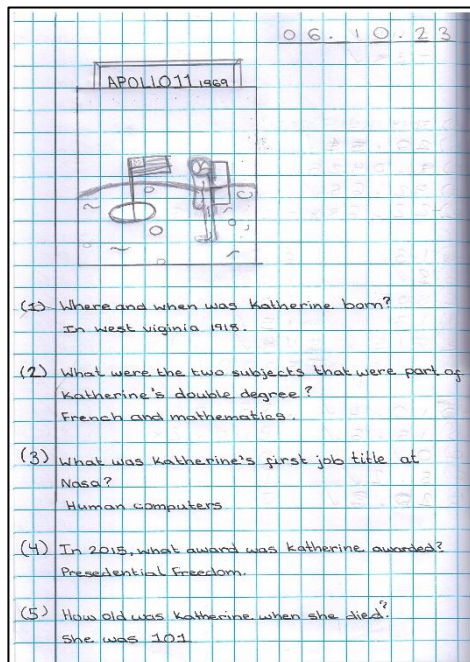 06.10.23
APOLLO11 1969
(1) Where and when was Katherine born?
In west viginia 1918.
(2) What were the two subjects that were part of
Katherine's double degree?
French and mathematics.
(3) What was Katherine's first job title at
Nasa?
Human computers
(4) In 2015, what award was Katherine awarded?
Presedential Freedom.
(5) How old was Katherine when she died?
She was 101